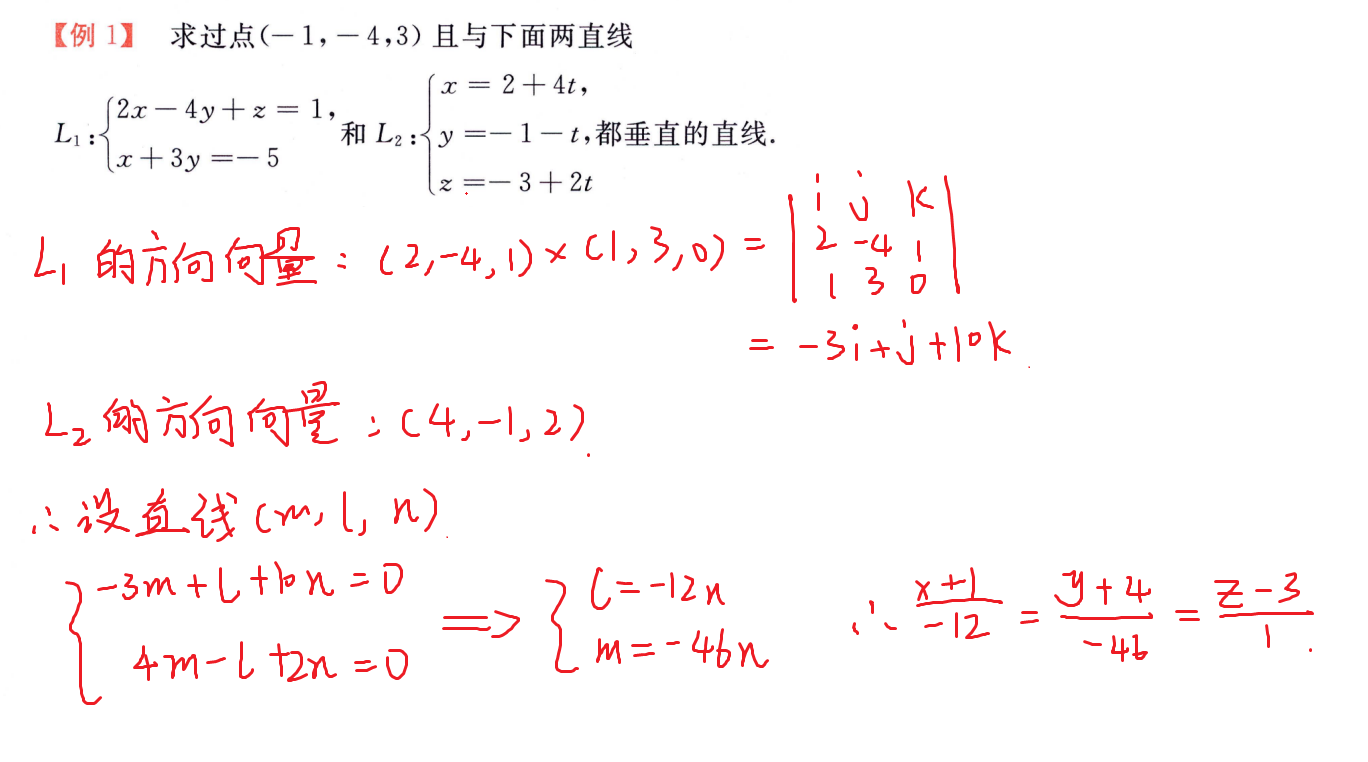 【例 1】 求过点(-1,-4,3) 且与下面两直线
L₁:{2x-4y+z=1, x+3y=-5 和 L₂:{x=2+4t, y=-1-t, z=-3+2t 都垂直的直线.
L₁ 的方向向量: (2,-4,1)×(1,3,0) = |i j k; 2 -4 1; 1 3 0|
= -3i+j+10k
L₂ 的方向向量: (4,-1,2)
∴设直线(m, l, n)
{-3m+l+10n=0, 4m-l+2n=0 => {l=-12n, m=-46n ∴ (x+1)/(-12) = (y+4)/(-46) = (z-3)/1.